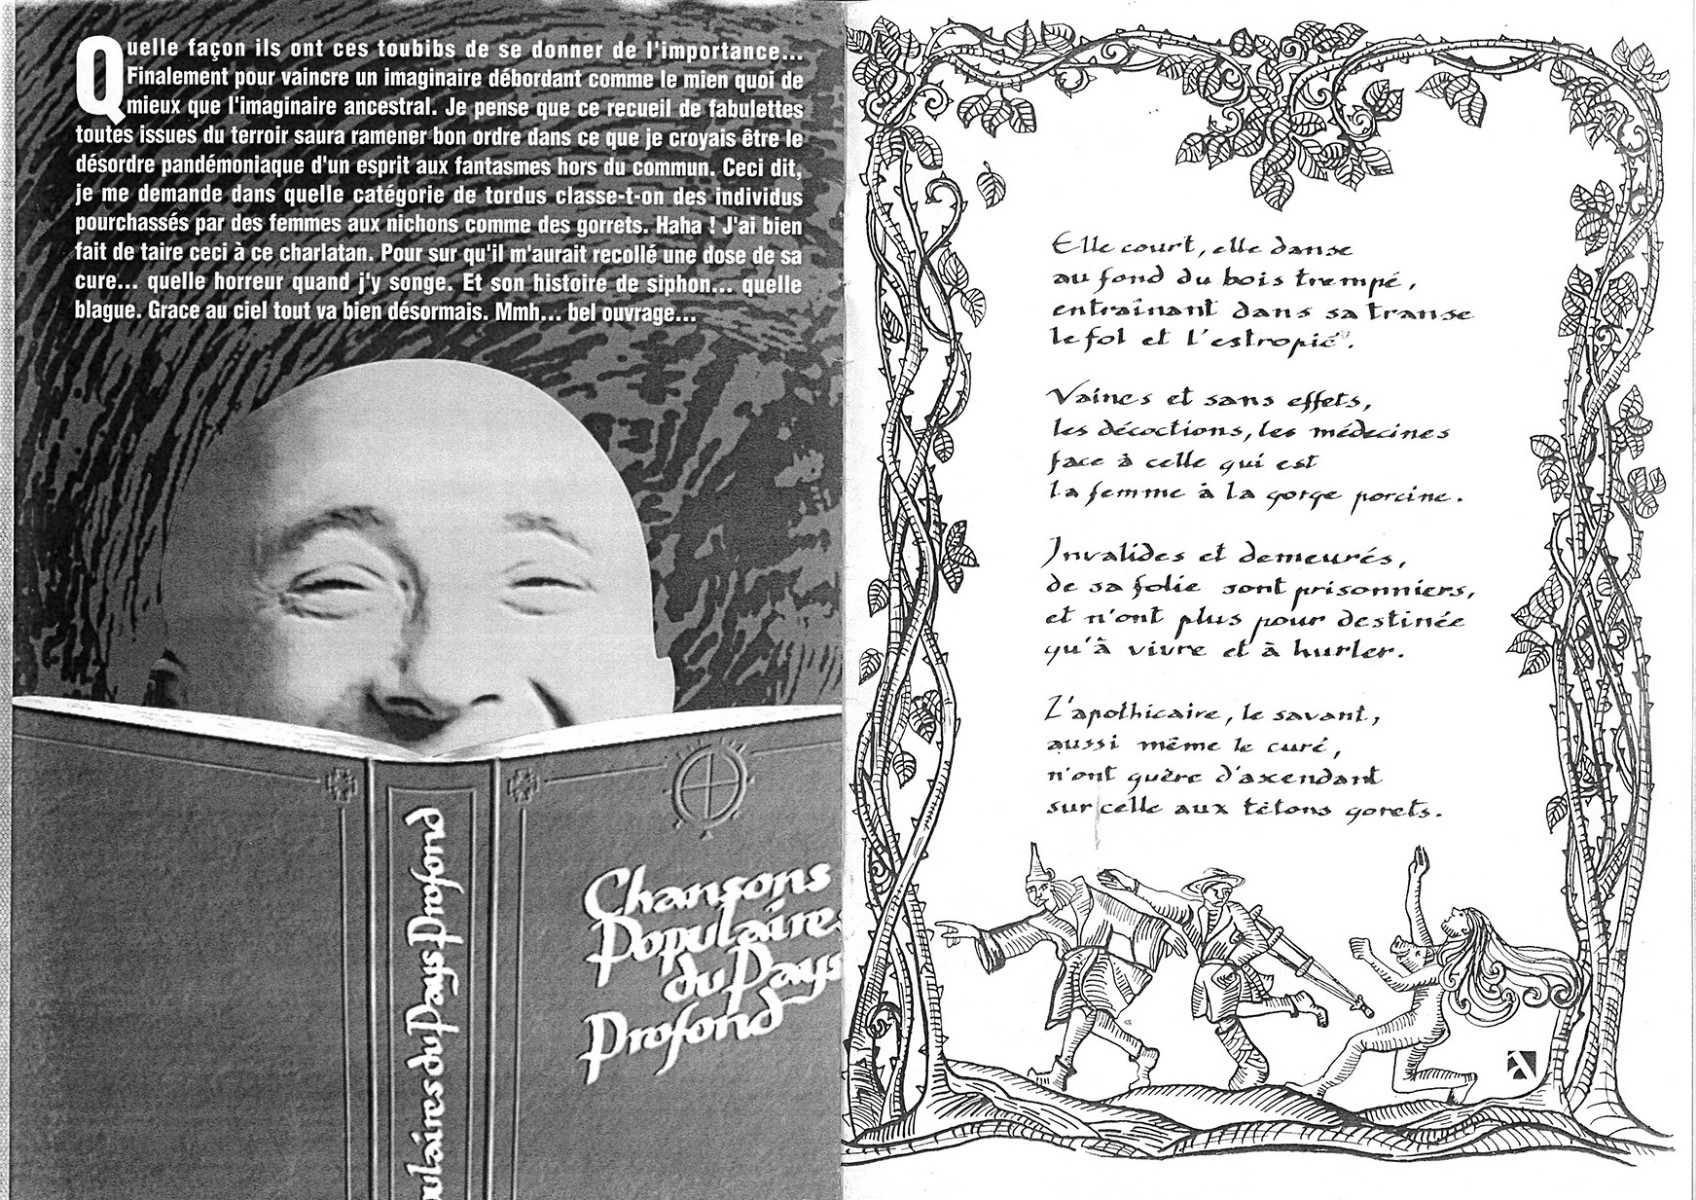 Quelle façon ils ont ces toubibs de se donner de l'importance...
Finalement pour vaincre un imaginaire débordant comme le mien quoi de
mieux que l'imaginaire ancestral. Je pense que ce recueil de fabulettes
toutes issues du terroir saura ramener bon ordre dans ce que je croyais être le
désordre pandémoniaque d'un esprit aux fantasmes hors du commun. Ceci dit,
je me demande dans quelle catégorie de tordus classe-t-on des individus
pourchassés par des femmes aux nichons comme des gorrets. Haha ! J'ai bien
fait de taire ceci à ce charlatan. Pour sur qu'il m'aurait recollé une dose de sa
cure... quelle horreur quand j'y songe. Et son histoire de siphon... quelle
blague. Grace au ciel tout va bien désormais. Mmh... bel ouvrage...
ulaires du Pays Profond
Chansons
Populaires
du Pays
Profond
Elle court, elle danse
au fond du bois trempé,
entraînant dans sa transe
le fol et l'estropié.
Vaines et sans effets,
les décoctions, les médecines
face à celle qui est
la femme à la gorge porcine.
Invalides et demeurés,
de sa folie sont prisonniers,
et n'ont plus pour destinée
qu'à vivre et à hurler.
L'apothicaire, le savant,
aussi même le curé,
n'ont guère d'axendant
sur celle aux tétons gorets.